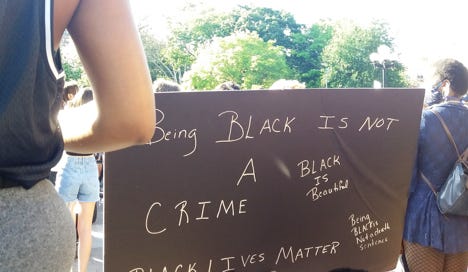 Being BLACK IS NOT
A
CRIME
BLACK
IS
Beautiful
Being
BLACK is
Not a death
Sentence
BLACK LIVES MATTER